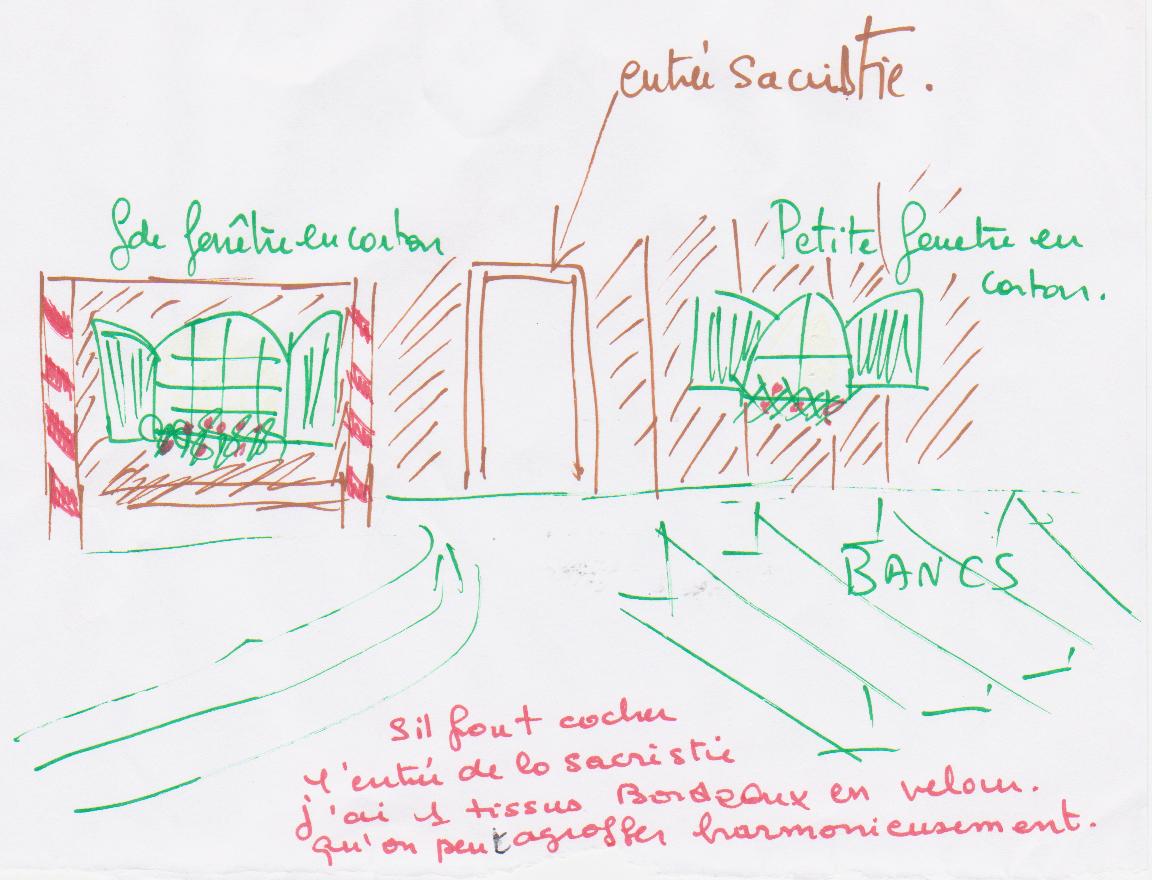 entrée sacristie.
Gde fenêtre en carton
Petite fenetre en
carton.
BANCS
s'il faut cacher
l'entrée de la sacristie
j'ai 1 tissus Bordeaux en velour.
qu'on peut agraffer harmonieusement.